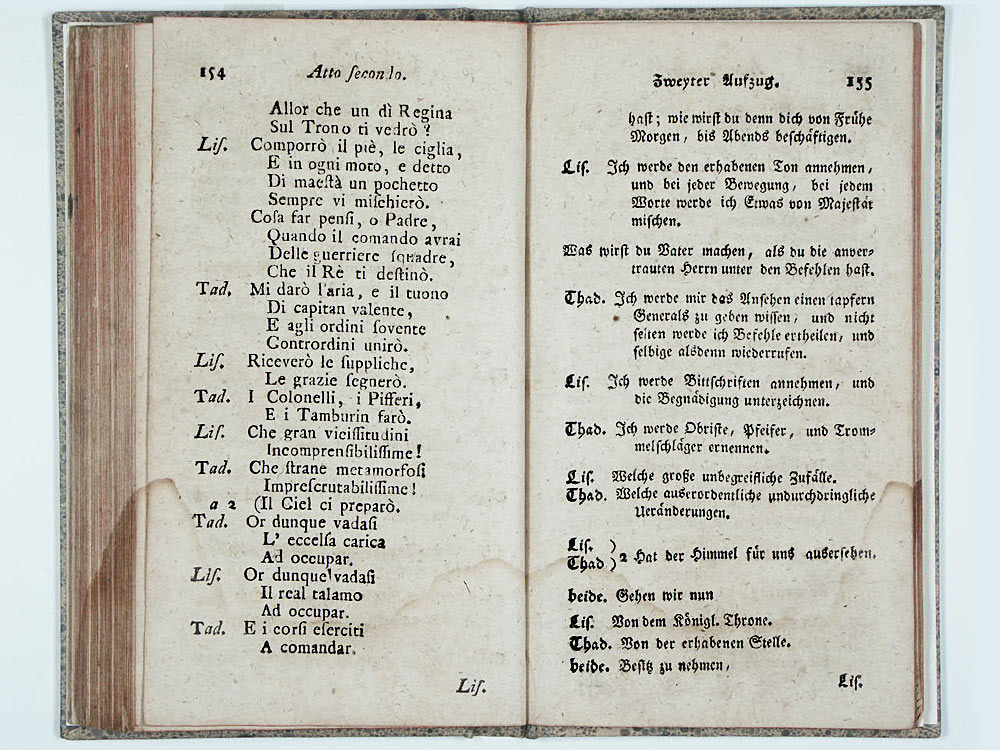 154 Atto secondo.
Allor che un dì Regina
Sul Trono ti vedrò?
Liſ. Comporrò il piè, le ciglia,
E in ogni moto, e detto
Di maeſtà un pochetto
Sempre vi miſchierò.
Coſa far penſi, o Padre,
Quando il comando avrai
Delle guerriere ſquadre,
Che il Rè ti deſtinò.
Tad. Mi darò l'aria, e il tuono
Di capitan valente,
E agli ordini ſovente
Contrordini unirò.
Liſ. Riceverò le ſuppliche,
Le grazie ſegnerò.
Tad. I Colonelli, i Pifferi,
E i Tamburin farò.
Liſ. Che gran viciſſitudini
Incomprenſibiliſſime!
Tad. Che ſtrane metamorfoſi
Impreſcrutabiliſſime!
a 2 (Il Ciel ci preparò.
Tad. Or dunque vadaſi
L' eccelſa carica
Ad occupar.
Liſ. Or dunque vadaſi
Il real talamo
Ad occupar.
Tad. E i corſi eſerciti
A comandar.
Liſ.
Zweyter Aufzug. 155
haſt; wie wirſt du denn dich von Frühe
Morgen, bis Abends beſchäftigen.
Liſ. Ich werde den erhabenen Ton annehmen,
und bei jeder Bewegung, bei jedem
Worte werde ich Etwas von Majeſtät
miſchen.
Was wirſt du Vater machen, als du die anver-
trauten Herrn unter den Befehlen haſt.
Thad. Ich werde mir das Anſehen einen tapfern
Generals zu geben wiſſen, und nicht
ſelten werde ich Befehle ertheilen, und
ſelbige alsdenn wiederrufen.
Liſ. Ich werde Bittſchriften annehmen, und
die Begnädigung unterzeichnen.
Thad. Ich werde Obriſte, Pfeifer, und Trom-
melſchläger ernennen.
Liſ. Welche große unbegreifliche Zufälle.
Thad. Welche auſerordentliche undurchdringliche
Veränderungen.
Liſ. )
Thad ) 2 Hat der Himmel für uns auserſehen.
beide. Gehen wir nun
Liſ. Von dem Königl. Throne.
Thad. Von der erhabenen Stelle.
beide. Beſitz zu nehmen,
Liſ.